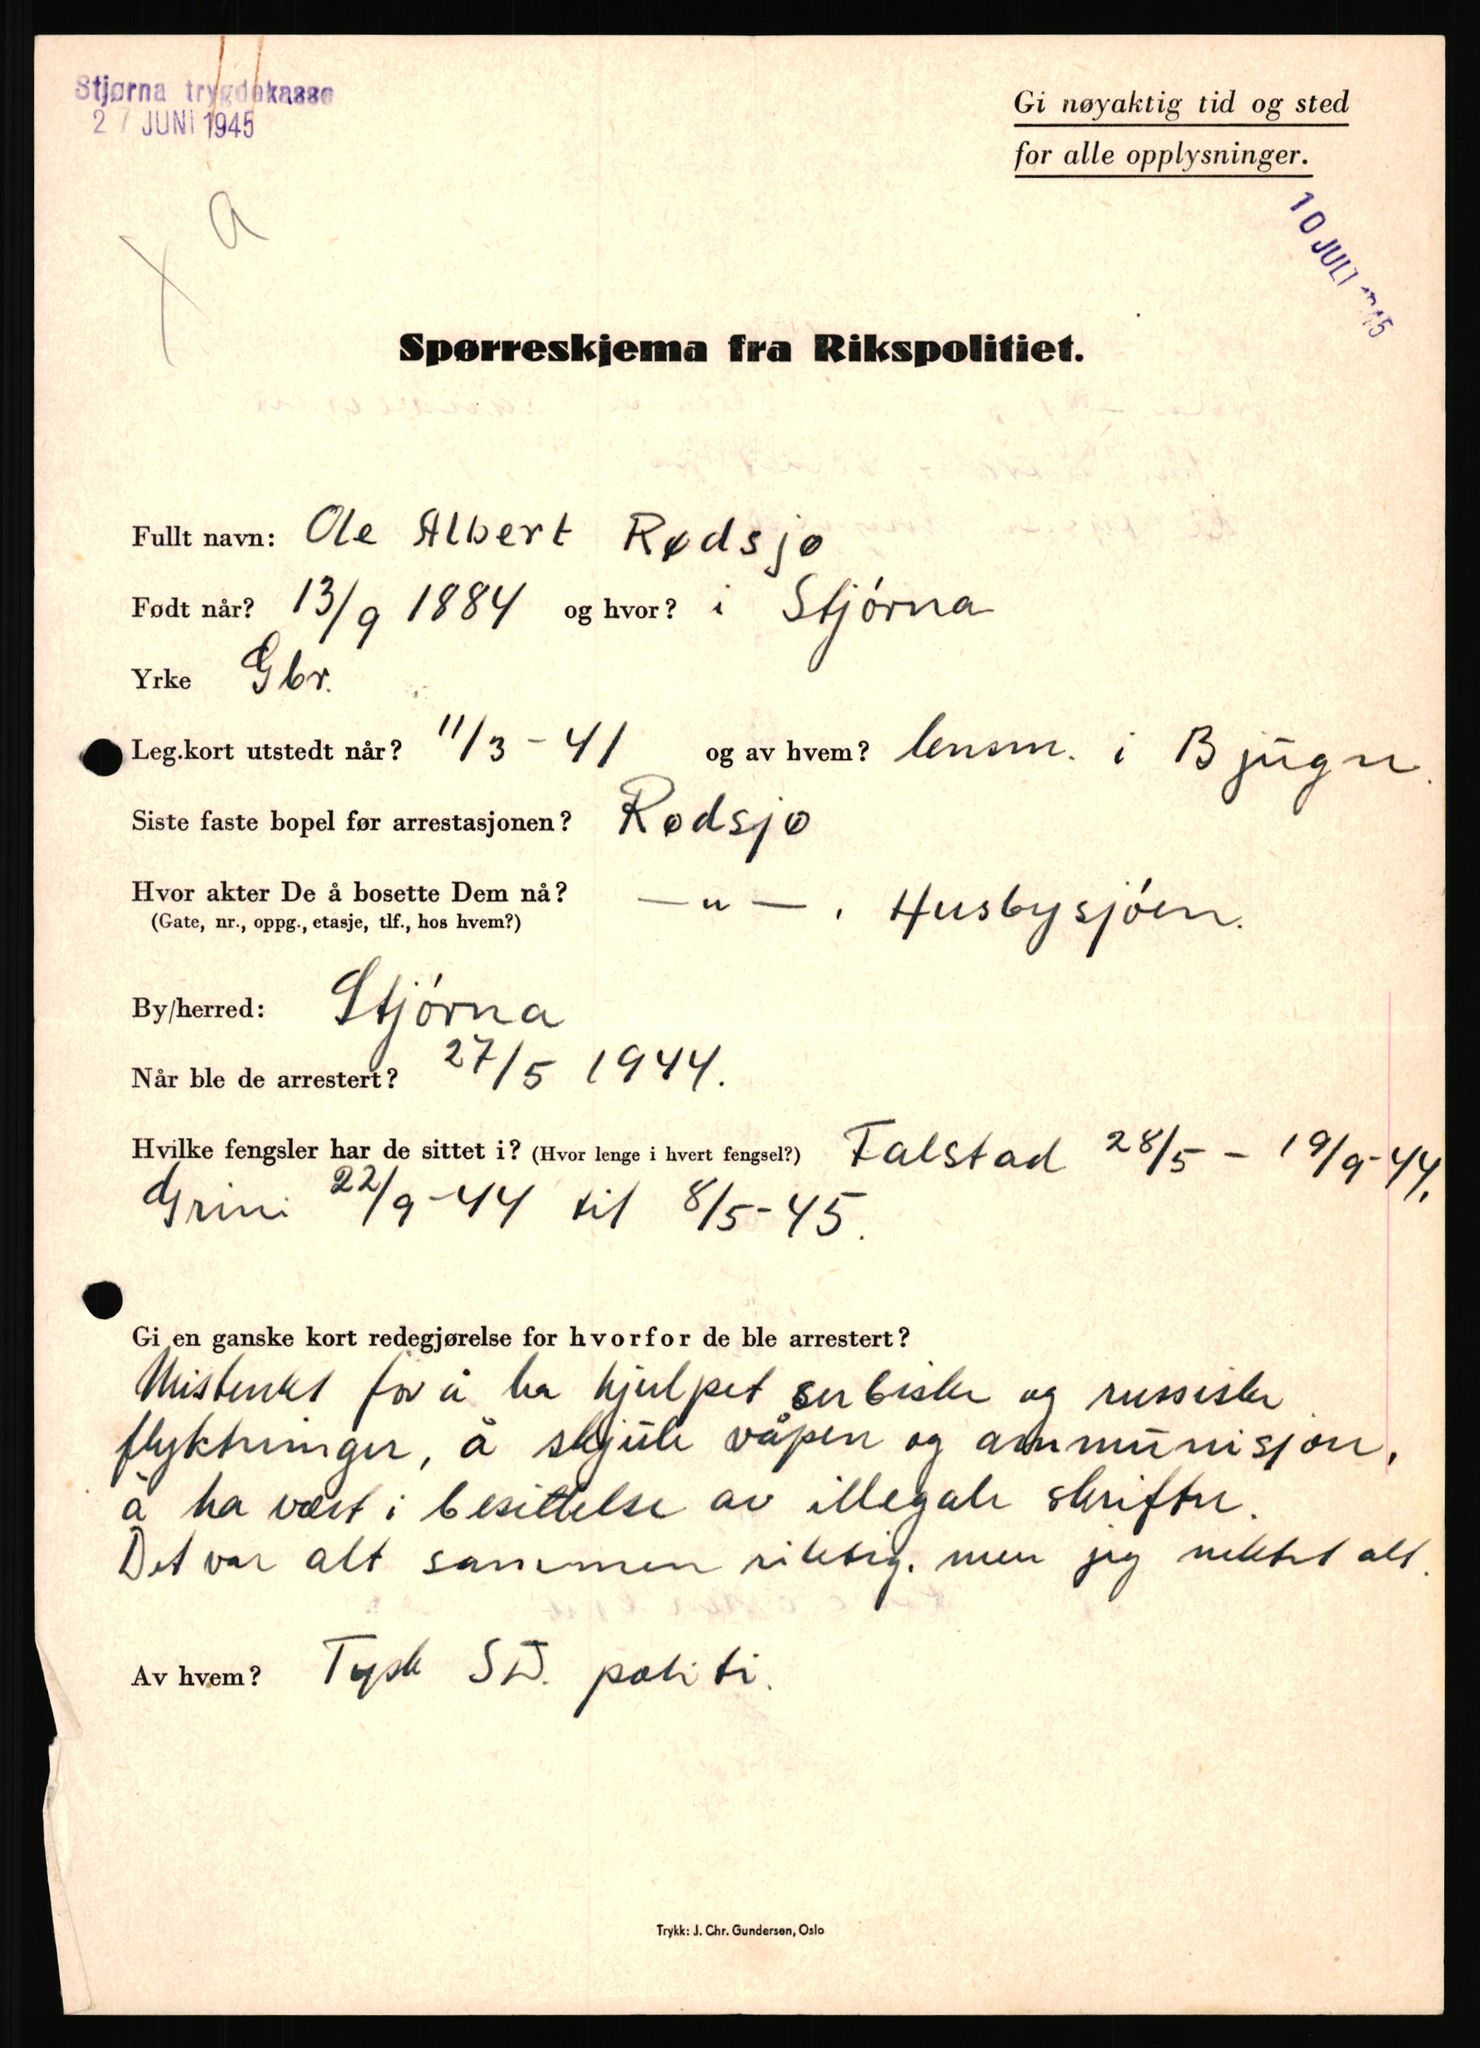 Stjørna trygdekasse
27 JUNI 1945
Gi nøyaktig tid og sted
for alle opplysninger.
10 JULI 1945
x a
Spørreskjema fra Rikspolitiet.
Fullt navn: Ole Albert Rødsjø
Født når? 13/9 1884 og hvor? i Stjórna
Yrke Gbr.
Leg.kort utstedt når? 11/3-41 og av hvem? lensm. i Bjugn.
Siste faste bopel før arrestasjonen? Rødsjø
Hvor akter De å bosette Dem nå? —"— . Husbysjóen.
(Gate, nr., oppg., etasje, tlf., hos hvem?)
By/herred: Stjórna
Når ble de arrestert? 27/5 1944.
Hvilke fengsler har de sittet i? (Hvor lenge i hvert fengsel?) Falstad 28/5 - 19/9-44.
Grini 22/9-44 til 8/5-45.
Gi en ganske kort redegjørelse for hvorfor de ble arrestert?
Mistenkt for å ha hjulpet serbiske og russiske
flyktninger, å skjule våpen og ammunisjon,
å ha vært i besittelse av illegale skrifter.
Det var alt sammen riktig. men jeg nektet alt.
Av hvem? Tysk SD. politi.
Trykk: J. Chr. Gundersen, Oslo